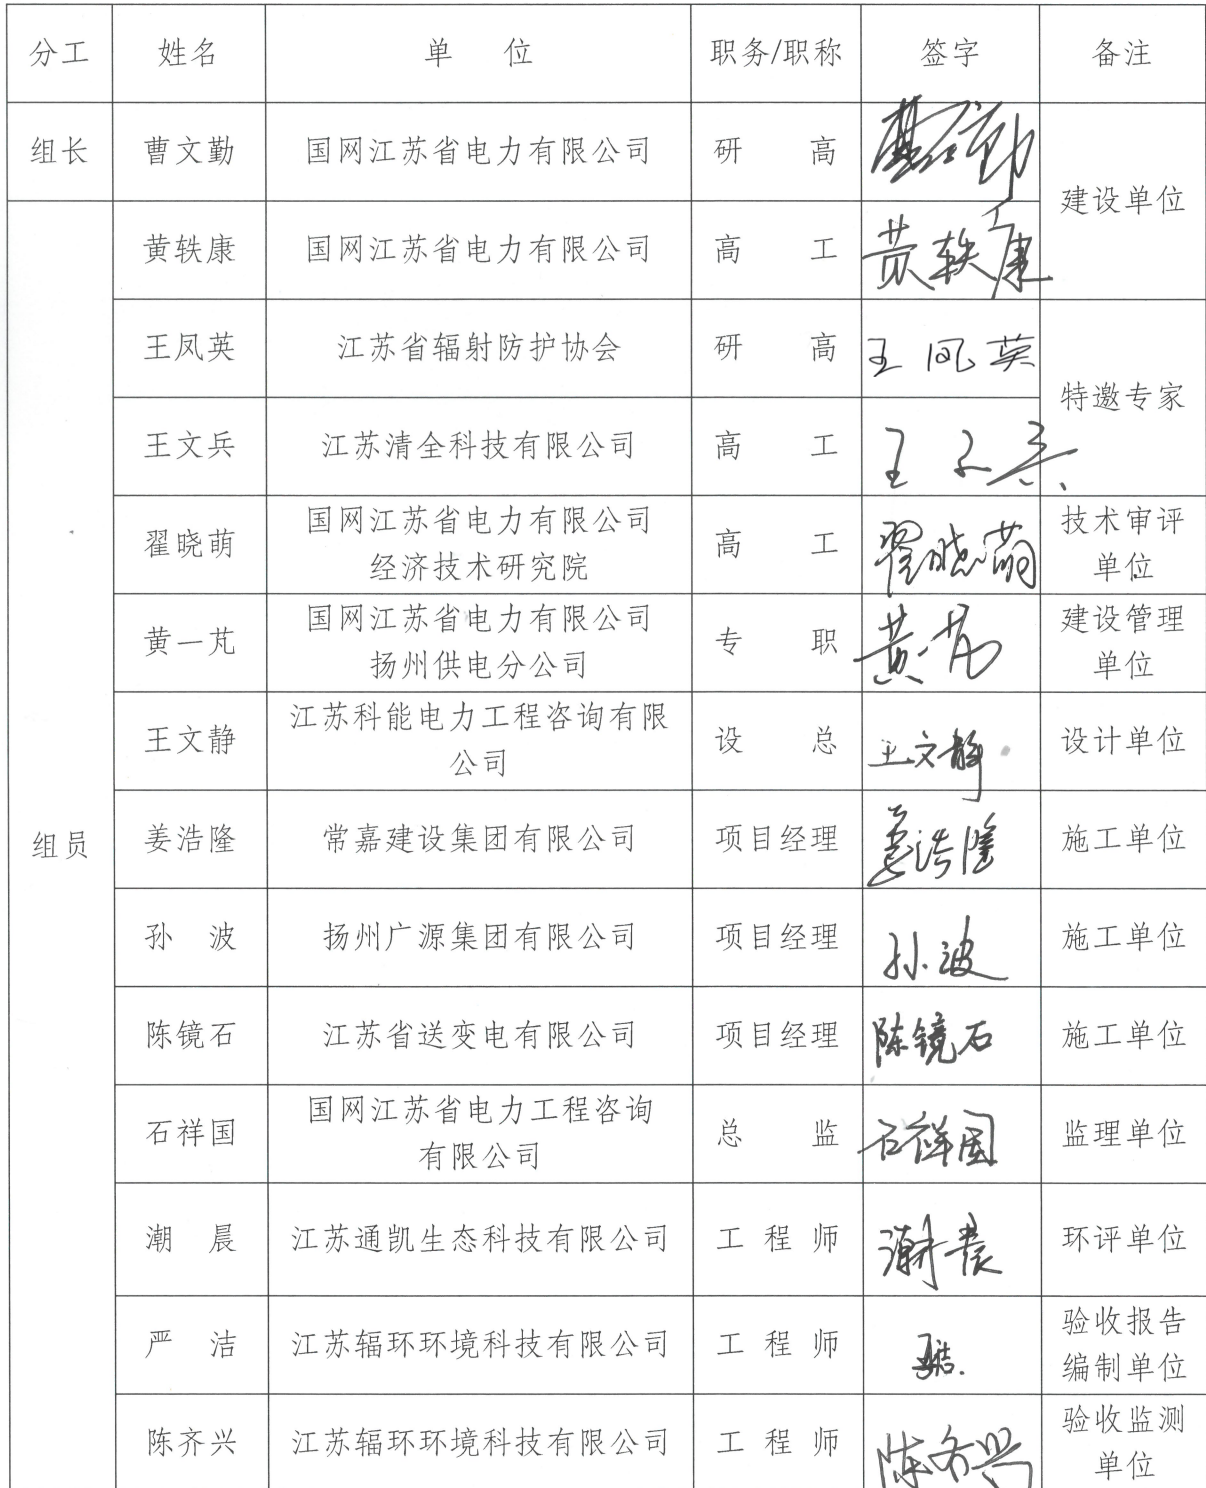 分工 姓名 单 位 职务/职称 签字 备注
组长 曹文勤 国网江苏省电力有限公司 研 高 曹文勤 建设单位
组员 黄轶康 国网江苏省电力有限公司 高 工 黄轶康
王凤英 江苏省辐射防护协会 研 高 王凤英 特邀专家
王文兵 江苏清全科技有限公司 高 工 王文兵
翟晓萌 国网江苏省电力有限公司 高 工 翟晓萌 技术审评
经济技术研究院 单位
黄一芃 国网江苏省电力有限公司 专 职 黄一芃 建设管理
扬州供电分公司 单位
王文静 江苏科能电力工程咨询有限 设 总 王文静 设计单位
公司
姜浩隆 常嘉建设集团有限公司 项目经理 姜浩隆 施工单位
孙 波 扬州广源集团有限公司 项目经理 孙波 施工单位
陈镜石 江苏省送变电有限公司 项目经理 陈镜石 施工单位
石祥国 国网江苏省电力工程咨询 总 监 石祥国 监理单位
有限公司
潮 晨 江苏通凯生态科技有限公司 工 程 师 潮晨 环评单位
严 洁 江苏辐环环境科技有限公司 工 程 师 严洁 验收报告
编制单位
陈齐兴 江苏辐环环境科技有限公司 工 程 师 陈齐兴 验收监测
单位